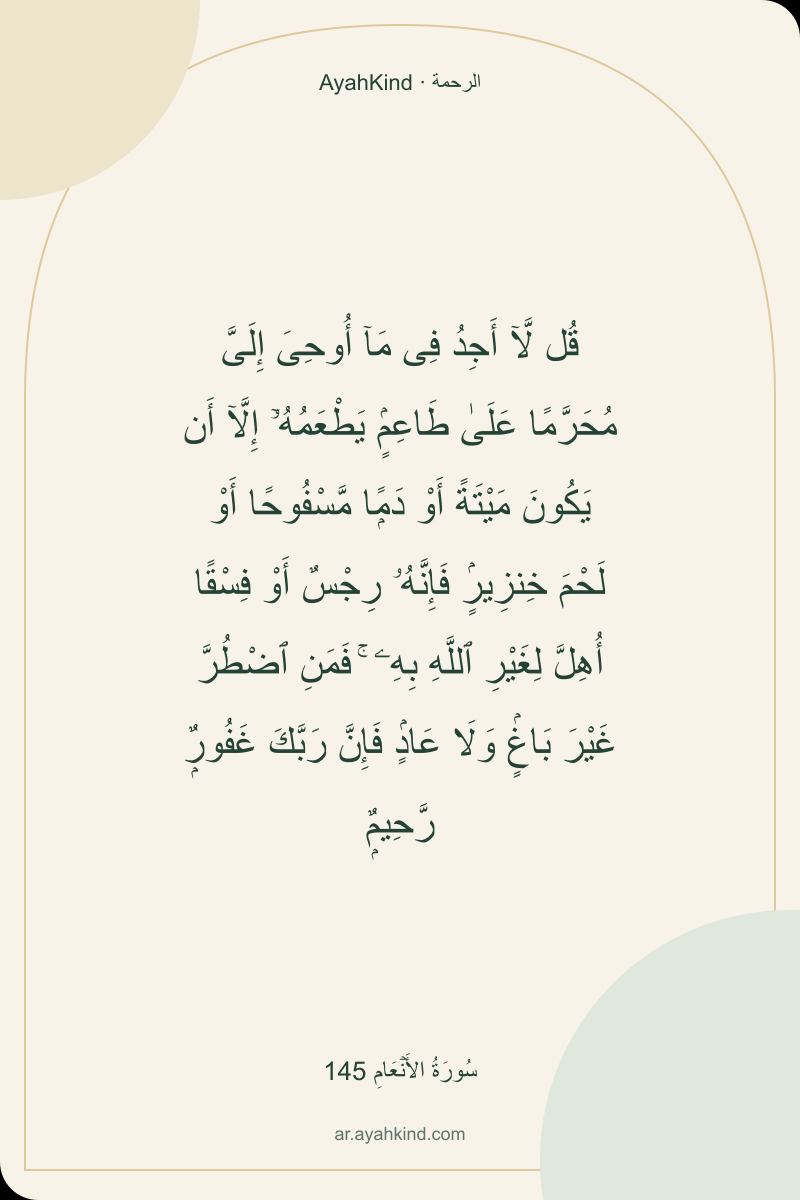 AyahKind · الرحمة
قُل لَّآ أَجِدُ فِى مَآ أُوحِىَ إِلَىَّ
مُحَرَّمًا عَلَىٰ طَاعِمٍۢ يَطْعَمُهُۥٓ إِلَّآ أَن
يَكُونَ مَيْتَةً أَوْ دَمًۭا مَّسْفُوحًا أَوْ
لَحْمَ خِنزِيرٍۢ فَإِنَّهُۥ رِجْسٌ أَوْ فِسْقًا
أُهِلَّ لِغَيْرِ ٱللَّهِ بِهِۦ ۚ فَمَنِ ٱضْطُرَّ
غَيْرَ بَاغٍۢ وَلَا عَادٍۢ فَإِنَّ رَبَّكَ غَفُورٌۭ
رَّحِيمٌۭ
سُورَةُ الأَنۡعَامِ 145
ar.ayahkind.com